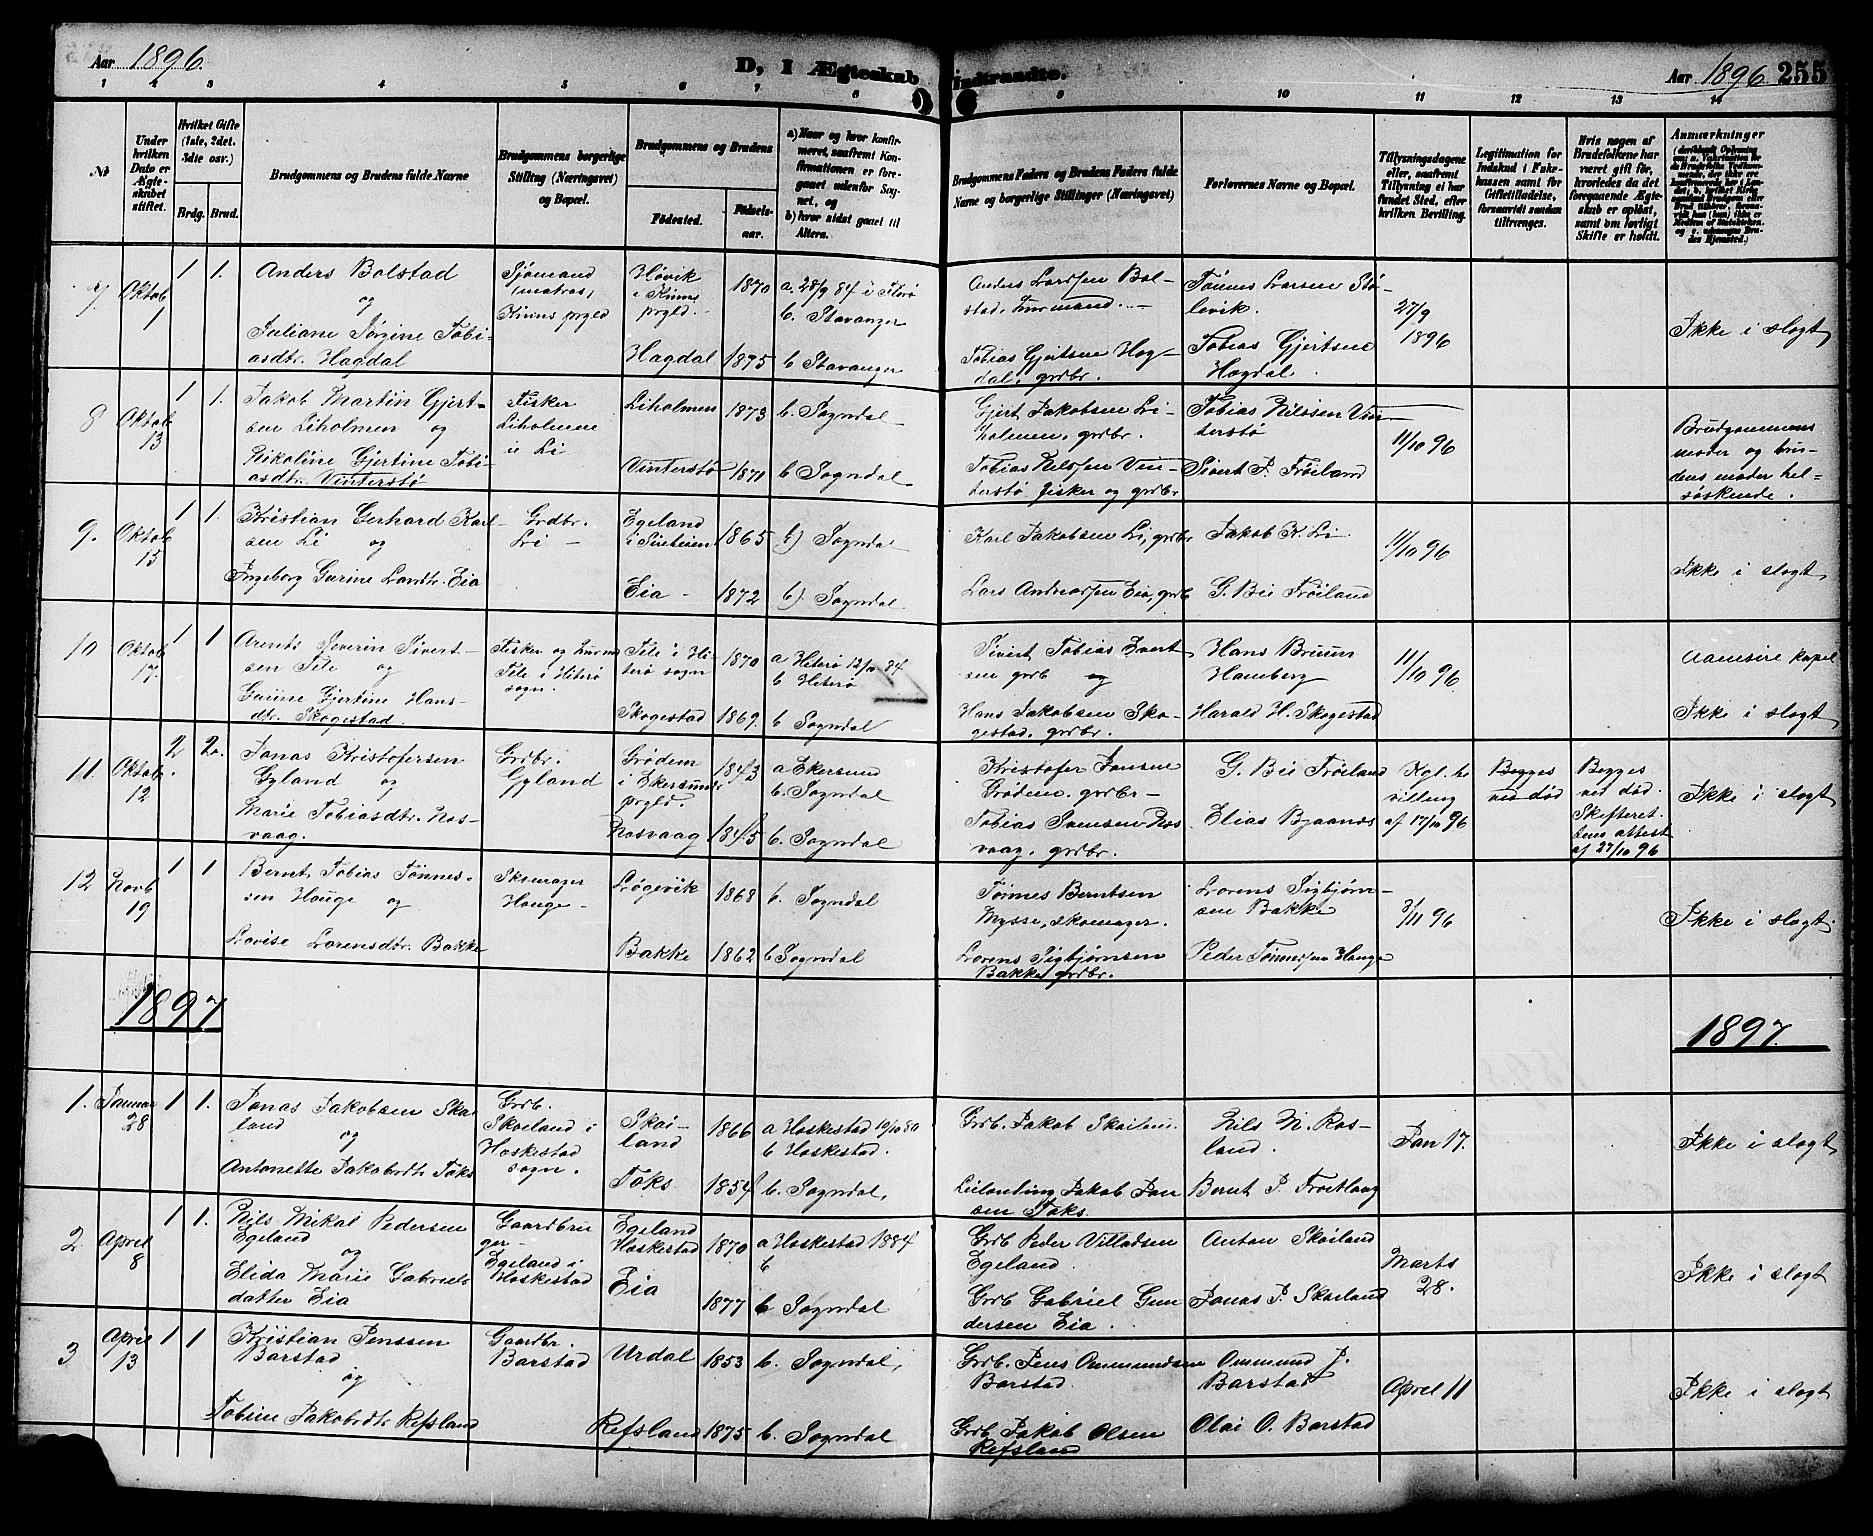 Aar 1896.
D, I Ægteskab Indtraadte.
Aar 1896 255
1 2 3 4 5 6 7 8 9 10 11 12 13 14
No
Under hvilken Dato er Ægteskabet stiftet.
Hvilket Gifte (1ste, 2det, 3die osv.)
Brdg. Brud.
Brudgommens og Brudens fulde Navne
Brudgommens borgerlige Stilling (Næringsvei) og Bopæl.
Brudgommens og Brudens
Fødested. Fødselsaar.
a) Naar og hvor konfirmeret, saafremt Konfirmationen er foregaaet udenfor Sognet, og
b) hvor sidst gaaet til Alters.
Brudgommens Faders og Brudens Faders fulde Navne og borgerlige Stillinger (Næringsvei)
Forlovernes Navne og Bopæl.
Tillysningsdagene eller, saafremt Tillysning ei har fundet Sted, efter hvilken Bevilling.
Legitimation for Indskud i Enkekassen samt for Giftetilladelse, forsaavidt saadan tiltrænges.
Hvis nogen af Brudefolkene har været gift før, hvorledes da det foregaaende Ægteskab er opløst, samt om lovligt Skifte er holdt.
Anmærkninger
7 Oktob 1
1 1.
Anders Bolstad
og
Juliane Jørgine Tobiasdtr. Hagdal
Sjømand, matros, Kinns prgld
Høvik i Kinns prgld. 1870
a. 28/9 84 i Florø
b. Stavanger
Hagdal 1875 b Stavanger
Anders Larssen Bolstad,
Tobias Gjertsen Hogdal, grdbr.
Tønnes Larsen Stølevik.
Tobias Gjertsen Hogdal.
27/9 1896
Ikke i slegt
8 Oktob 13
1 1.
Jakob Martin Gjertsen Liholmen og
Nikoline Gjertine Tobiasdtr. Vinterstø
Fisker Liholmen u Li
Liholmen 1873 b. Sogndal
Vinterstø 1871 b Sogndal
Gjert Jakobsen Liholmen, grdbr.
Tobias Nilssen Vinterstø fisker og grdbr
Tobias Nilssen Vinterstø
Sivert P. Frøiland
11/10 96
Brudgommens moder og brudens moder helsøskende.
9. Oktob 15
1 1.
Kristian Gerhard Karlsen Li og
Ingeborg Gurine Larsdtr. Eia
Grdbr. Li
Egeland i 1865 b) Sogndal
Eia 1872 b) Sogndal
Karl Jakobsen Li, grdbr
Lars Andreassen Eia, grdb
Jakob K. Li
G. Bie Frøiland
11/10 96
Ikke i slegt
10 Oktob 17.
1 1
Arent Severin Sivertsen Sele og
Gurine Gjertine Hansdtr. Skogestad.
Fisker og
i Hiterø sogn.
i Hiterø sogn 1870 a Hiterø 12/10 84
b Hiterø
Skogestad 1869 b Sogndal
Sivert Tobias Evertsen grdb og
Hans Jakobsen Skogestad, grdbr.
Hans Bruun Hamberg
Harald H. Skogestad
11/10 96
Aamsire kapel
Ikke i slegt
11. Oktob. 12
2 2.
Jonas Kristofersen Gyland og
Marie Tobiasdtr. Rosvaag.
Grdbr. Gyland
Grødem i Ekersunds prgld. 1843 a Ekersund
b. Sogndal
Rosvaag 1845 b. Sogndal
Kristofer Jonsen Grødem. grdbr
Tobias Svensen Rosvaag, grdbr.
G. Bie Frøiland
Elias Bjaanes
Kgl. bevilling af 17/10 96
Begges ved død
Begges ved død. Skifterettens attest af 27/10 96
Ikke i slegt
12 Novb 19
1 1
Bernt Tobias Tønnessen Hauge og
Lovise Lorensdtr. Bakke
Skomager Hauge
Løgevik 1868 b. Sogndal
Bakke 1862 b Sogndal
Tønnes Berntsen Mysse, skomager.
Lorens Sigbjørnsen Bakke grdbr.
Lorens Sigbjørnsen Bakke
Peder Tønnessen Hauge
3/11 96
Ikke i slegt.
1897 1897.
1. Januar 28
1 1.
Jonas Jakobsen Skoiland
og
Antonette Jakobsdtr Foks
Grdb. Skoiland i Heskestad sogn.
Skoiland 1866 a Heskestad 10/10 80
b Heskestad.
Foks. 1854 b. Sogndal,
Grdb. Jakob Skoiland
Leilænding Jakob Jansen Foks.
Nils N. Rosland.
Bernt P. Frøitlaug
Jan 17.
Ikke i slegt
2 April 8
1 1.
Nils Mikal Pedersen Egeland
og
Elida Marie Gabrielsdatter Eia
Gaardbruger
Egeland i Heskestad
Egeland Heskestad 1870 a Heskestad 1884
b
Eia 1877 b Sogndal
Grdb Peder Villadsen Egeland.
Grdb Gabriel Gundersen Eia.
Anton Skoiland
Jonas P. Skoiland
Marts 28.
Ikke i slegt
3 April 13
1 1
Kristian Jenssen Barstad
og
Tobine Jakobsdtr Refsland
Gaardbr. Barstad
Urdal 1853 b. Sogndal,
Refsland 1875 b. Sogndal
Grdb. Jens Ommundsen Barstad.
Grdb Jakob Olsen Refsland
Ommund J. Barstad
Olai O. Barstad
April 11
Ikke i slegt